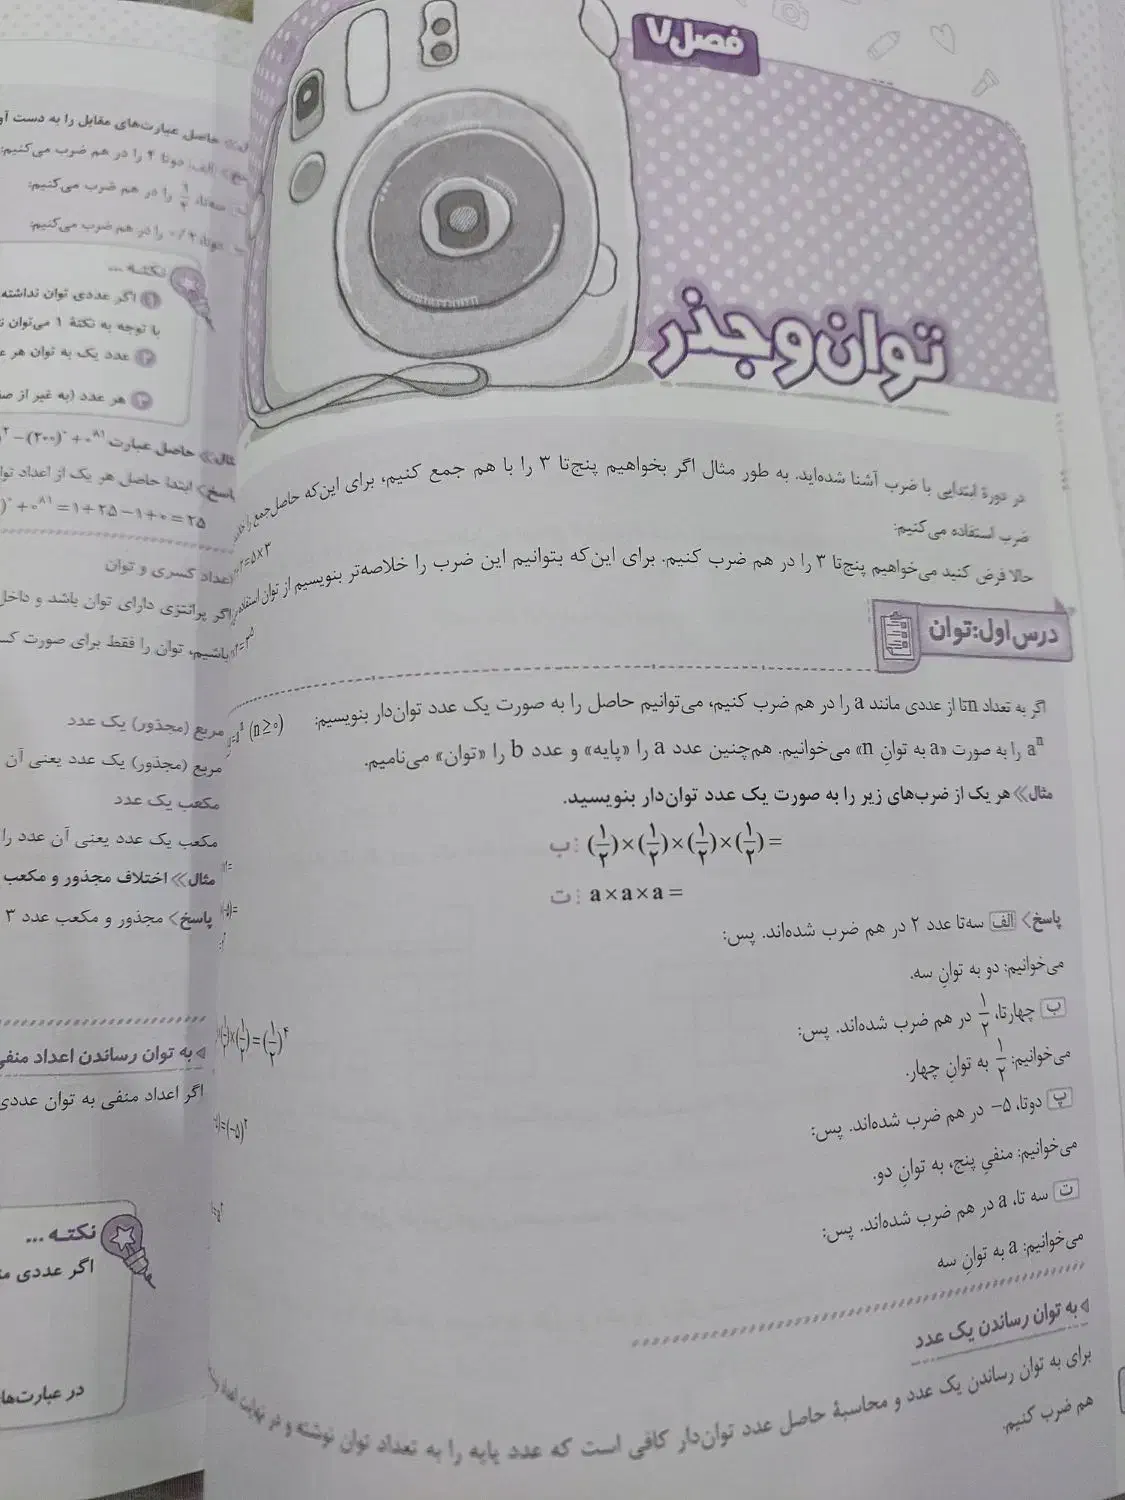 فصل ۷
توان و جذر
در دورهٔ ابتدایی با ضرب آشنا شده‌اید. به طور مثال اگر بخواهیم پنج‌تا ۳ را با هم جمع کنیم، برای این‌که حاصل‌جمع را
ضرب استفاده می‌کنیم:
=۵×۳
حالا فرض کنید می‌خواهیم پنج‌تا ۳ را در هم ضرب کنیم. برای این‌که بتوانیم این ضرب را خلاصه‌تر بنویسیم از توان استفاده
=۳^۵
درس اول: توان
اگر به تعداد nتا از عددی مانند a را در هم ضرب کنیم، می‌توانیم حاصل را به صورت یک عدد توان‌دار بنویسیم: (n≥۰)
a^n را به صورت «a به توانِ n» می‌خوانیم. هم‌چنین عدد a را «پایه» و عدد b را «توان» می‌نامیم.
مثال» هر یک از ضرب‌های زیر را به صورت یک عدد توان‌دار بنویسید.
ب: (۱/۲)×(۱/۲)×(۱/۲)×(۱/۲)=
ت: a×a×a=
پاسخ> الف سه‌تا عدد ۲ در هم ضرب شده‌اند. پس:
می‌خوانیم: دو به توانِ سه.
ب چهارتا، ۱/۲ در هم ضرب شده‌اند. پس: ×(۱/۲)=(۱/۲)^۴
می‌خوانیم: ۱/۲ به توانِ چهار.
پ دوتا، ۵− در هم ضرب شده‌اند. پس: =(−۵)^۲
می‌خوانیم: منفیِ پنج، به توانِ دو.
ت سه تا، a در هم ضرب شده‌اند. پس:
می‌خوانیم: a به توانِ سه
به توان رساندن یک عدد
برای به توان رساندن یک عدد و محاسبهٔ حاصل عدد توان‌دار کافی است که عدد پایه را به تعداد توان نوشته و در نهایت اعداد
هم ضرب کنیم.
حاصل عبارت‌های مقابل را به دست
الف: دوتا ۴ را در هم ضرب می‌کنیم:
سه‌تا، را در هم ضرب می‌کنیم:
دوتا، را در هم ضرب می‌کنیم:
نکته ...
۱ اگر عددی توان نداشته
با توجه به نکتهٔ ۱ می‌توان
۲ عدد یک به توان هر
۳ هر عدد (به غیر از
مثال» حاصل عبارت −(۲۰۰)^۰+۰^۸۱
پاسخ> ابتدا حاصل هر یک از اعداد
+۰^۸۱=۱+۲۵−۱+۰=۲۵
اعداد کسری و توان
اگر پرانتزی دارای توان باشد و داخل
باشیم، توان را فقط برای صورت
مربع (مجذور) یک عدد
مربع (مجذور) یک عدد یعنی آن
مکعب یک عدد
مکعب یک عدد یعنی آن عدد را
مثال» اختلاف مجذور و مکعب
پاسخ> مجذور و مکعب عدد ۳
به توان رساندن اعداد منفی
اگر اعداد منفی به توان عددی
نکته ...
اگر عددی
در عبارت‌های